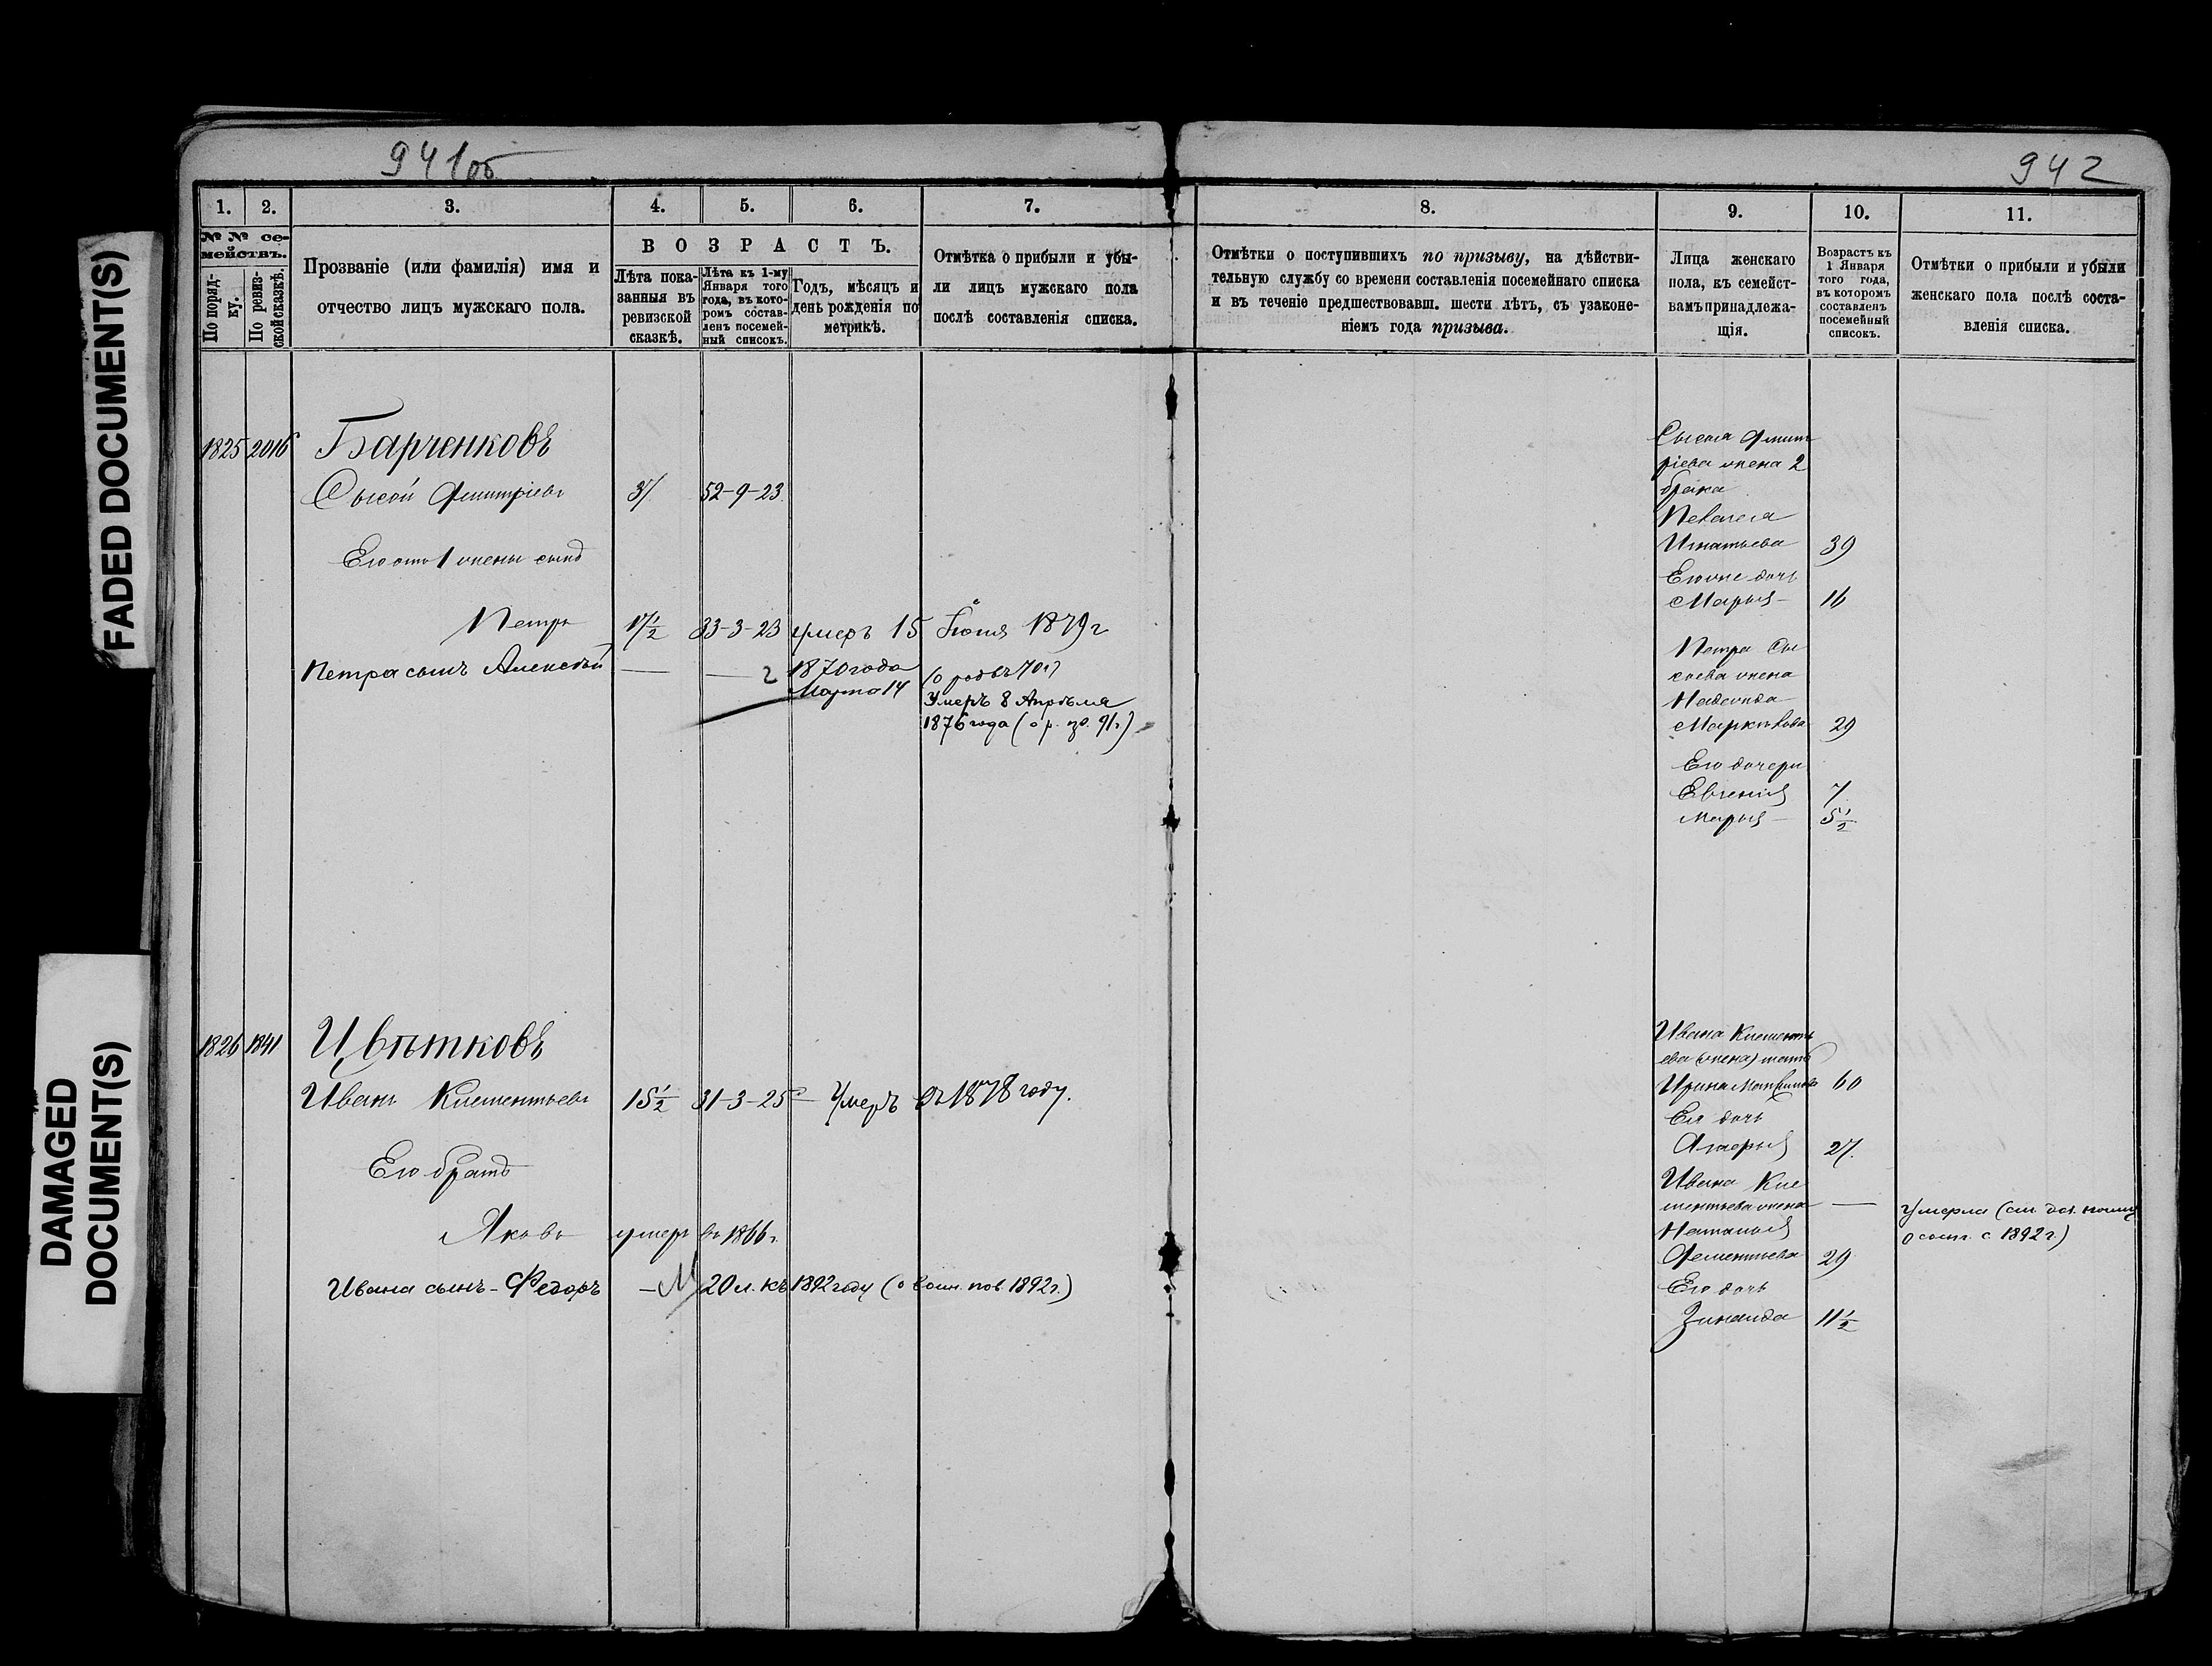 FADED DOCUMENT(S)
DAMAGED
DOCUMENT(S)
941об
1.
2.
3.
4.
5.
6.
7.
№ № се-
мействъ.
По поряд-
ку.
По ревиз-
ской сказкѣ.
Прозваніе (или фамилія) имя и
отчество лицъ мужскаго пола.
ВОЗРАСТЪ.
Лѣта пока-
занныя въ
ревизской
сказкѣ.
Лѣта къ 1-му
Января того
года, въ кото-
ромъ состав-
ленъ посемей-
ный списокъ.
Годъ, мѣсяцъ и
день рожденія по
метрикѣ.
Отмѣтка о прибыли и убы-
ли лицъ мужскаго пола
послѣ составленія списка.
1825 2016 Барченковъ
Сысой Дмитріевъ 37 52-9-23
Его отъ 1 жены сынъ
Петръ 17½ 33-3-23 умеръ 15 Іюня 1879 г
Петра сынъ Алексѣй — — 2 1870 года
Марта 14
Умеръ 8 Апрѣля
1876 года
1826 1841 Цвѣтковъ
Иванъ Клементьевъ 15½ 31-3-25 — Умеръ въ 1878 году.
Его братъ
Яковъ умеръ въ 1866 г.
Ивана сынъ - Федоръ — 20 л. къ 1892 году (о воин. пов. 1892 г.)
942
8.
9.
10.
11.
Отмѣтки о поступившихъ по призыву, на дѣйстви-
тельную службу со времени составленія посемейнаго списка
и въ теченіе предшествовавш. шести лѣтъ, съ узаконе-
ніемъ года призыва.
Лица женскаго
пола, къ семейст-
вамъ принадлежа-
щія.
Возрастъ къ
1 Января
того года,
въ которомъ
составленъ
посемейный
списокъ.
Отмѣтки о прибыли и убыли
женскаго пола послѣ соста-
вленія списка.
Сысоя Дмит
ріева жена 2
брака
Пелагея
Игнатьева 39
Его же дочь
Марья — 16
Петра Сы
соева жена
Надежда
Маркѣлова 29
Его дочери
Евгенія 7
Марья — 5½
Ивана Клементь
ева (жена) мать
Ирина 60
Ея дочь
27.
Ивана Кле
ментьева жена —
Наталья
Дементьева 29
Его дочь
Зинаида 11½
Умерла
с 1892 г.)